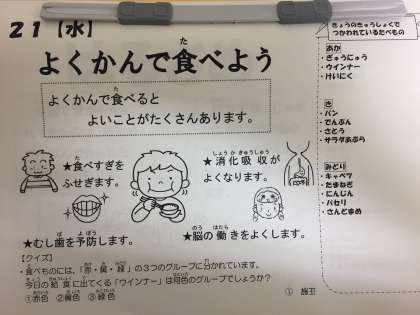 21【水】
よくかんで食べよう
よくかんで食べると
よいことがたくさんあります。
★食べすぎを
ふせぎます。
★消化吸収が
よくなります。
★むし歯を予防します。
★脳の働きをよくします。
【クイズ】
・食べものには、「赤・黄・緑」の3つのグループに分かれています。
今日の給食に出てくる「ウインナー」は何色のグループでしょうか？
①赤色 ②黄色 ③緑色
きょうのきゅうしょくで
つかわれているたべもの
あか
・ぎゅうにゅう
・ウインナー
・けいにく
き
・パン
・でんぷん
・さとう
・サラダあぶら
みどり
・キャベツ
・たまねぎ
・にんじん
・パセリ
・さんどまめ